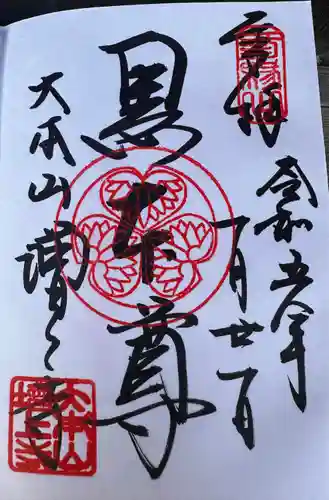 奉拝
令和五年
七月廿一日
黒本尊
大本山 増上寺
大本山増上寺